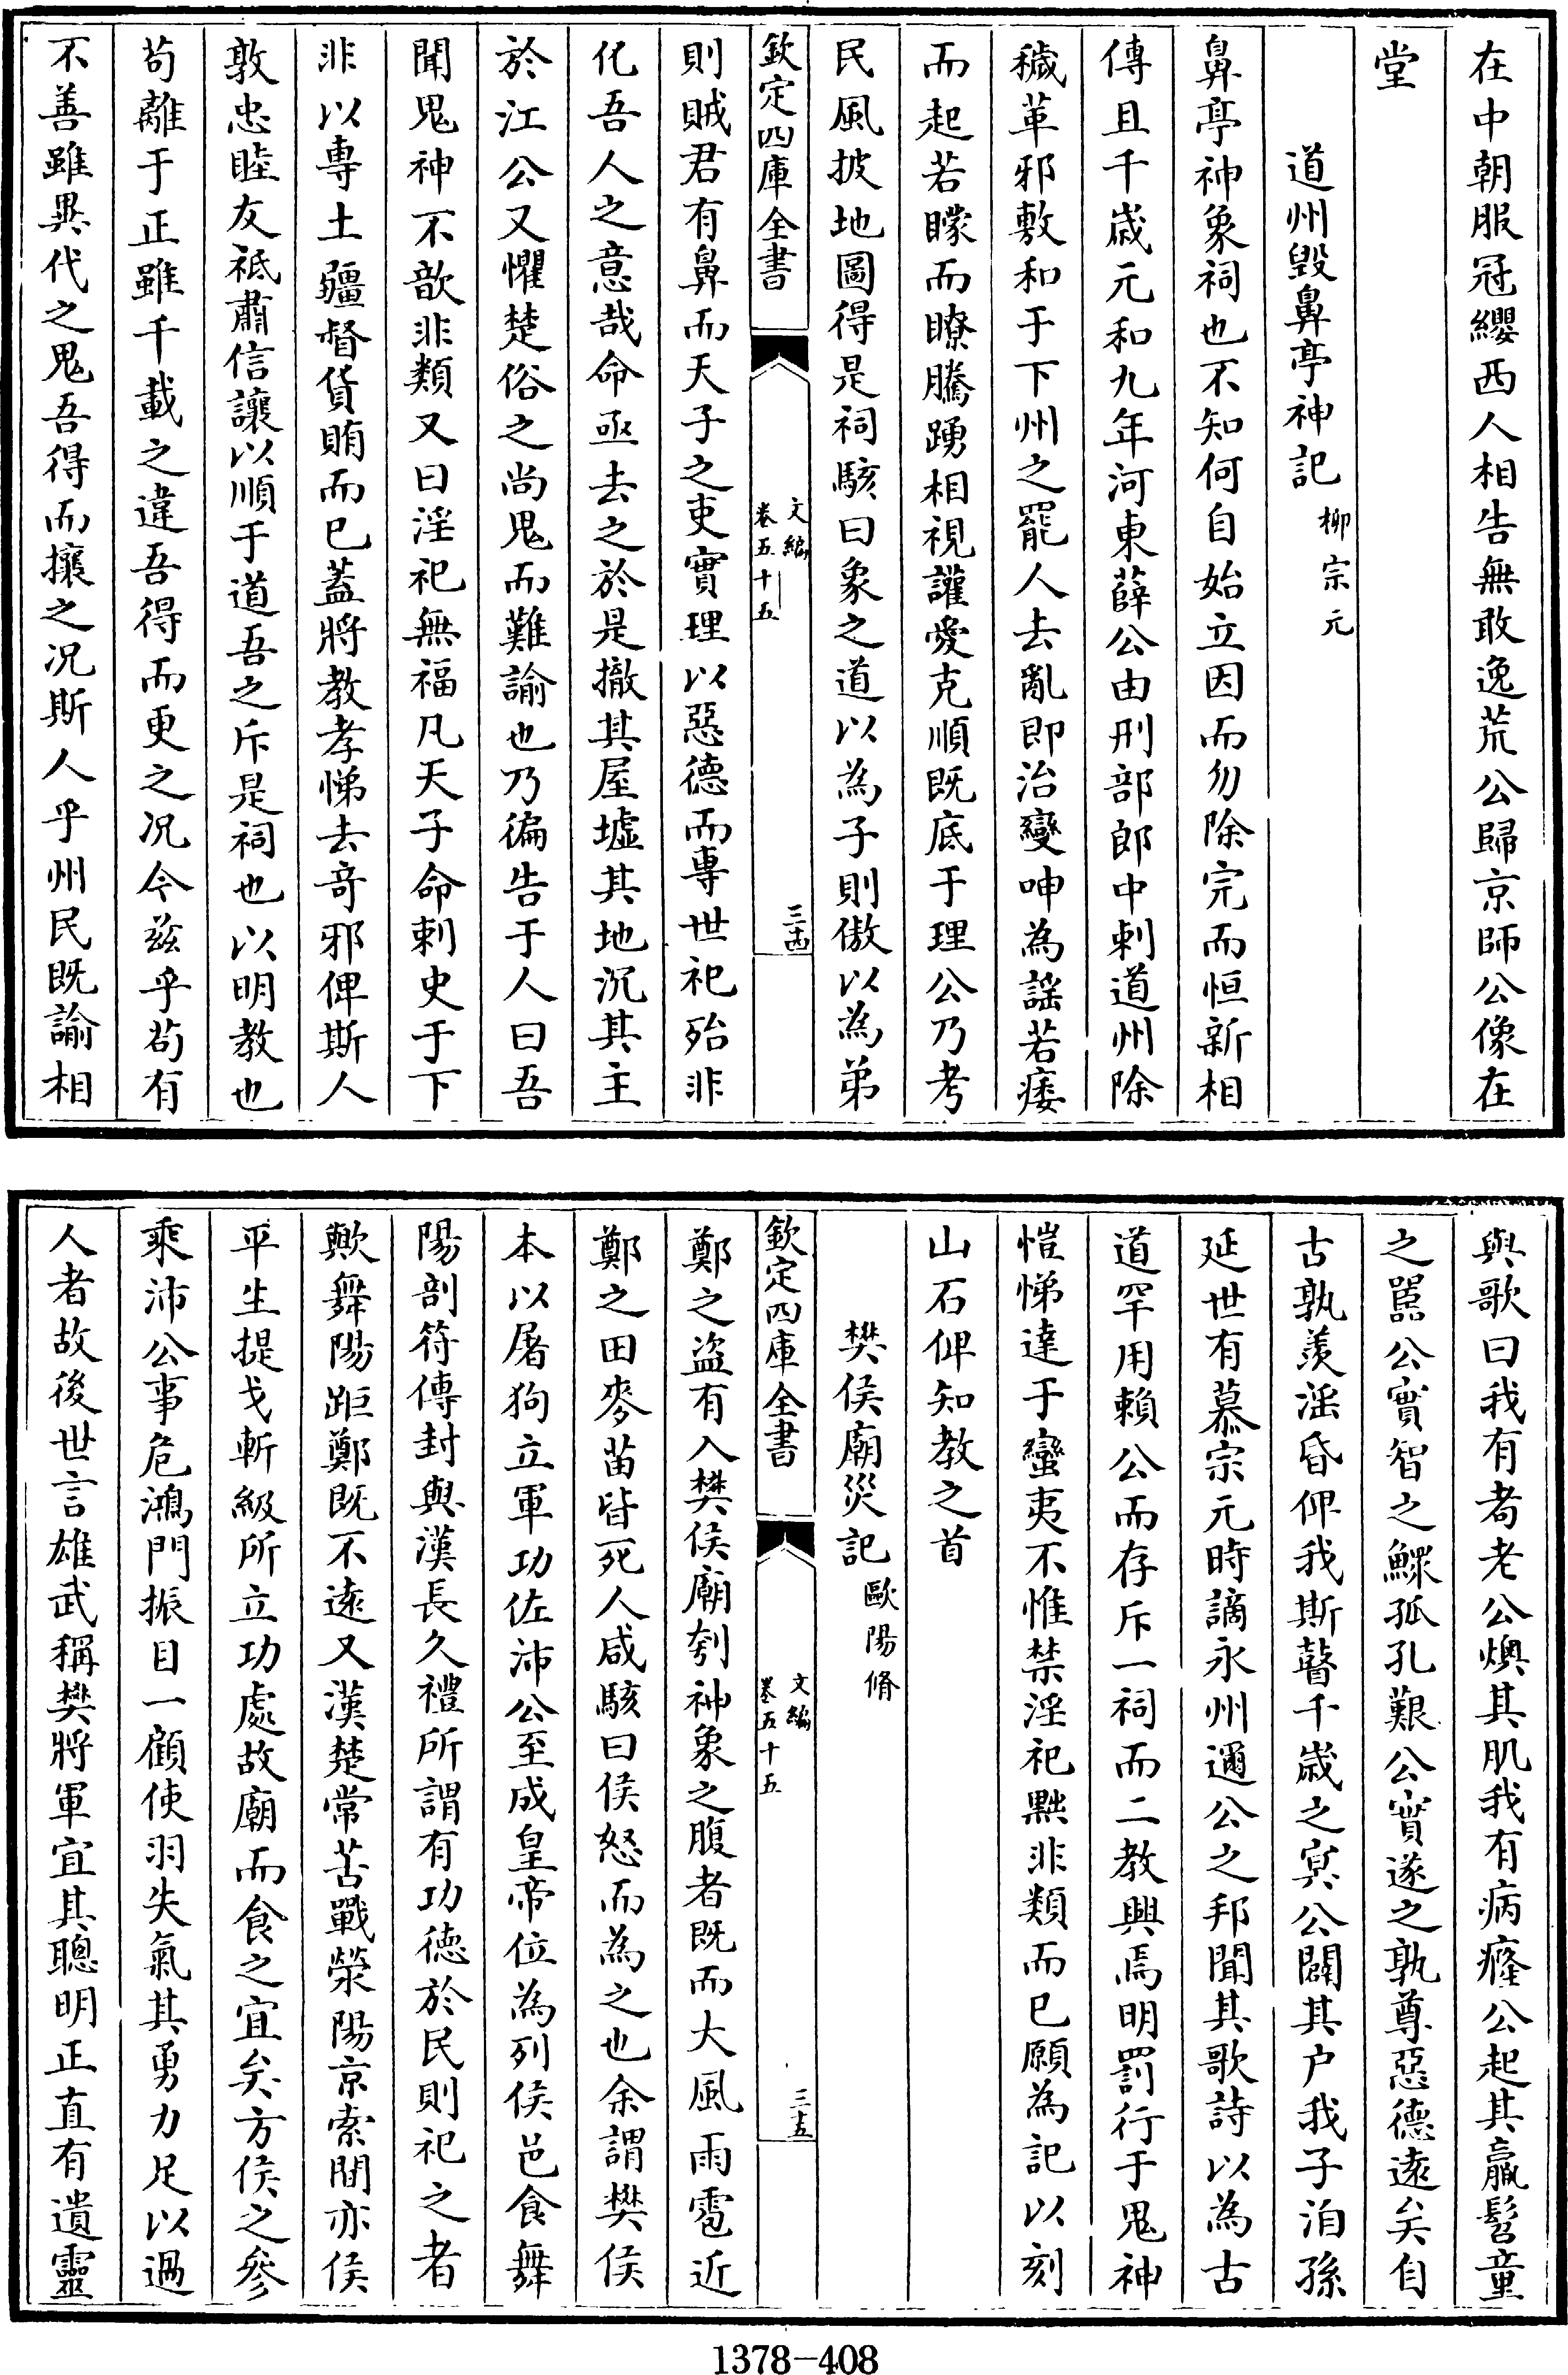 在中朝服冠纓西人相告無敢逸荒公歸京師公像在
堂
道州毀鼻亭神記 柳宗元
鼻亭神象祠也不知何自始立因而勿除完而恒新相
傳且千歲元和九年河東薛公由刑部郎中刺道州除
穢革邪敷和于下州之罷人去亂即治變呻為謡若痿
而起若矇而瞭騰踴相視讙愛克順既底于理公乃考
民風披地圖得是祠駭曰象之道以為子則傲以為弟
欽定四庫全書
文編
卷五十五
三十四
則賊君有鼻而天子之吏實理以惡德而専世祀殆非
化吾人之意哉命亟去之於是撤其屋墟其地沉其主
於江公又懼楚俗之尚鬼而難諭也乃徧告于人曰吾
聞鬼神不歆非類又曰淫祀無福凡天子命刺史于下
非以專土疆督貨賄而已蓋將教孝悌去奇邪俾斯人
敦忠睦友祗肅信讓以順于道吾之斥是祠也以明教也
苟離于正雖千載之違吾得而更之况今兹乎苟有
不善雖異代之鬼吾得而攘之况斯人乎州民既諭相
與歌曰我有耇老公燠其肌我有病癃公起其羸髫童
之嚚公實智之鰥孤孔艱公實遂之孰尊惡德遠矣自
古孰羨淫昏俾我斯瞽千歲之冥公闢其户我子洎孫
延世有慕宗元時謫永州邇公之邦聞其歌詩以為古
道罕用賴公而存斥一祠而二教興焉明罰行于鬼神
愷悌達于蠻夷不惟禁淫祀黜非類而已願為記以刻
山石俾知教之首
樊侯廟災記 歐陽脩
欽定四庫全書
文編
卷五十五
三十五
鄭之盜有入樊侯廟刳神象之腹者既而大風雨雹近
鄭之田麥苗皆死人咸駭曰侯怒而為之也余謂樊侯
本以屠狗立軍功佐沛公至成皇帝位為列侯邑食舞
陽剖符傳封與漢長久禮所謂有功德於民則祀之者
歟舞陽距鄭既不遠又漢楚常苦戰滎陽京索間亦侯
平生提戈斬級所立功處故廟而食之宜矣方侯之參
乘沛公事危鴻門振目一顧使羽失氣其勇力足以過
人者故後世言雄武稱樊將軍宜其聰明正直有遺靈
1378-408